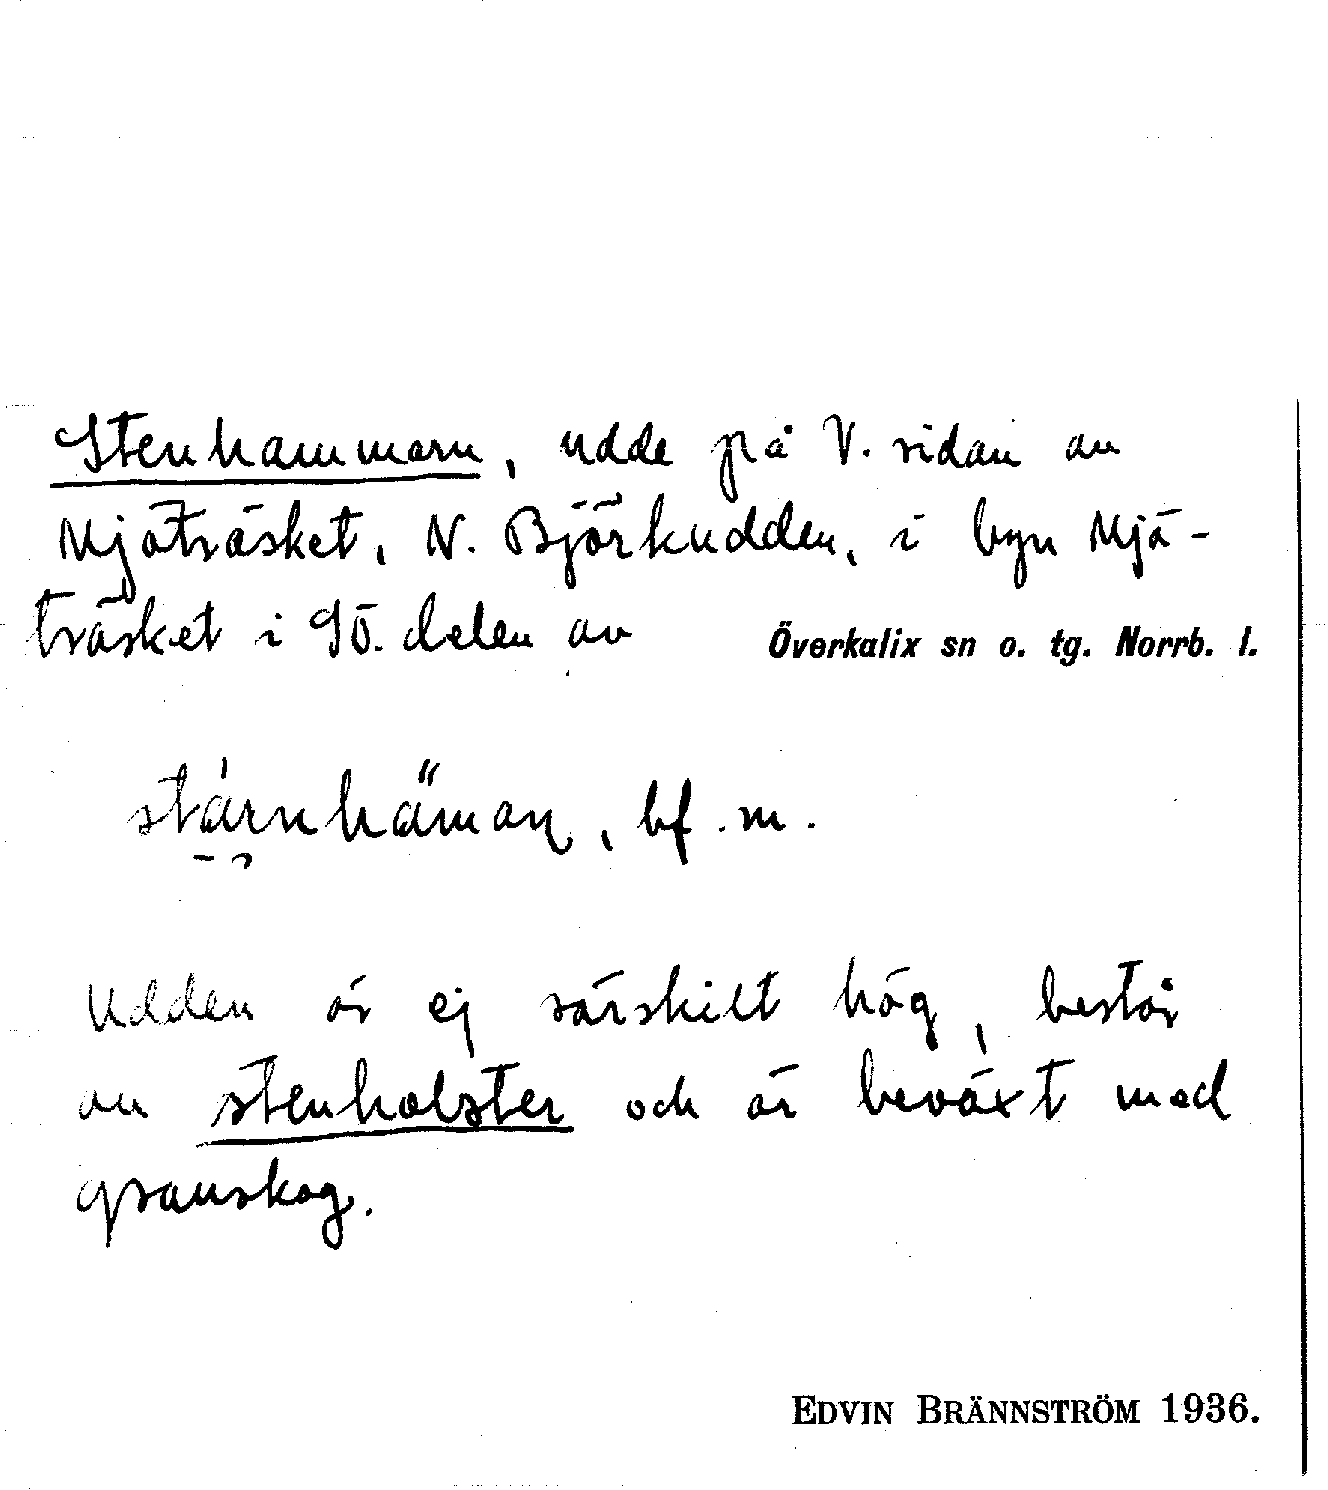 Stenhammarn, udde på V. sidan av
Mjöträsket, N. Björkudden, i byn Mjö-
träsket i SÖ. delen av Överkalix sn o. tg. Norrb. l.
bf. m.
Udden är ej särskilt hög, består
av stenholster och är beväxt med
granskog.
EDVIN BRÄNNSTRÖM 1936.